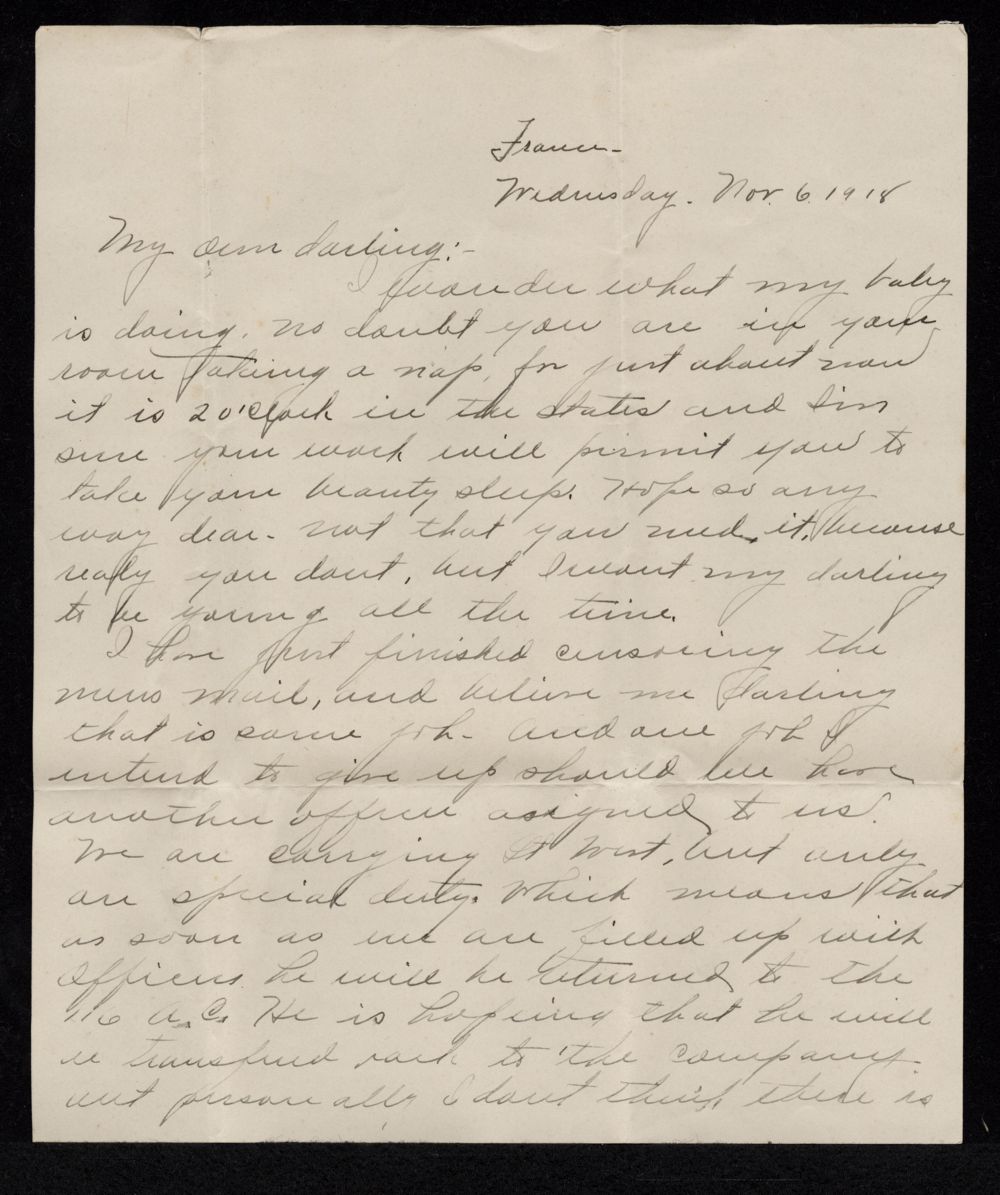 France-
Wednesday. Nov. 6. 1918
My own darling:-
I wonder what my baby
is doing. no doubt you are in your
room taking a nap, for just about now
it is 2 o'clock in the states and I'm
sure your work will permit you to
take your beauty sleep. Hope so any
way dear. not that you need it, because
realy you dont, but I want my darling
to be young all the time.
I have just finished censoring the
mens mail, and believe me darling
that is some job- and one job I
intend to give up should we have
another officer assigned to us.
We are carrying Lt West, but only
on special duty. Which means that
as soon as we are filled up with
officers he will be returned to the
116 A.C. He is hopeing that he will
be transfered back to the company
but personally I dont think there is